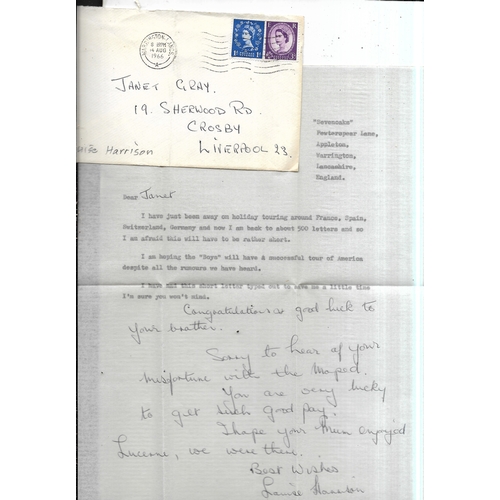 WARRINGTON, LANCS.
8 15PM
14 AUG
1966
A
JANET GRAY.
19. SHERWOOD RD.
CROSBY
LIVERPOOL 23.
Harrison
"Sevenoaks"
Pewterspear Lane,
Appleton,
Warrington,
Lancashire,
England.
Dear Janet
I have just been away on holiday touring around France, Spain,
Switzerland, Germany and now I am back to about 500 letters and so
I am afraid this will have to be rather short.
I am hoping the "Boys" will have a successful tour of America
despite all the rumours we have heard.
I have had this short letter typed out to save me a little time
I'm sure you won't mind.
Congratulations & good luck to
your brother.
Sorry to hear of your
misfortune with the Moped.
You are very lucky
to get such good pay.
I hope your Mum enjoyed
Lucerne, we were there.
Best Wishes
Louise Harrison